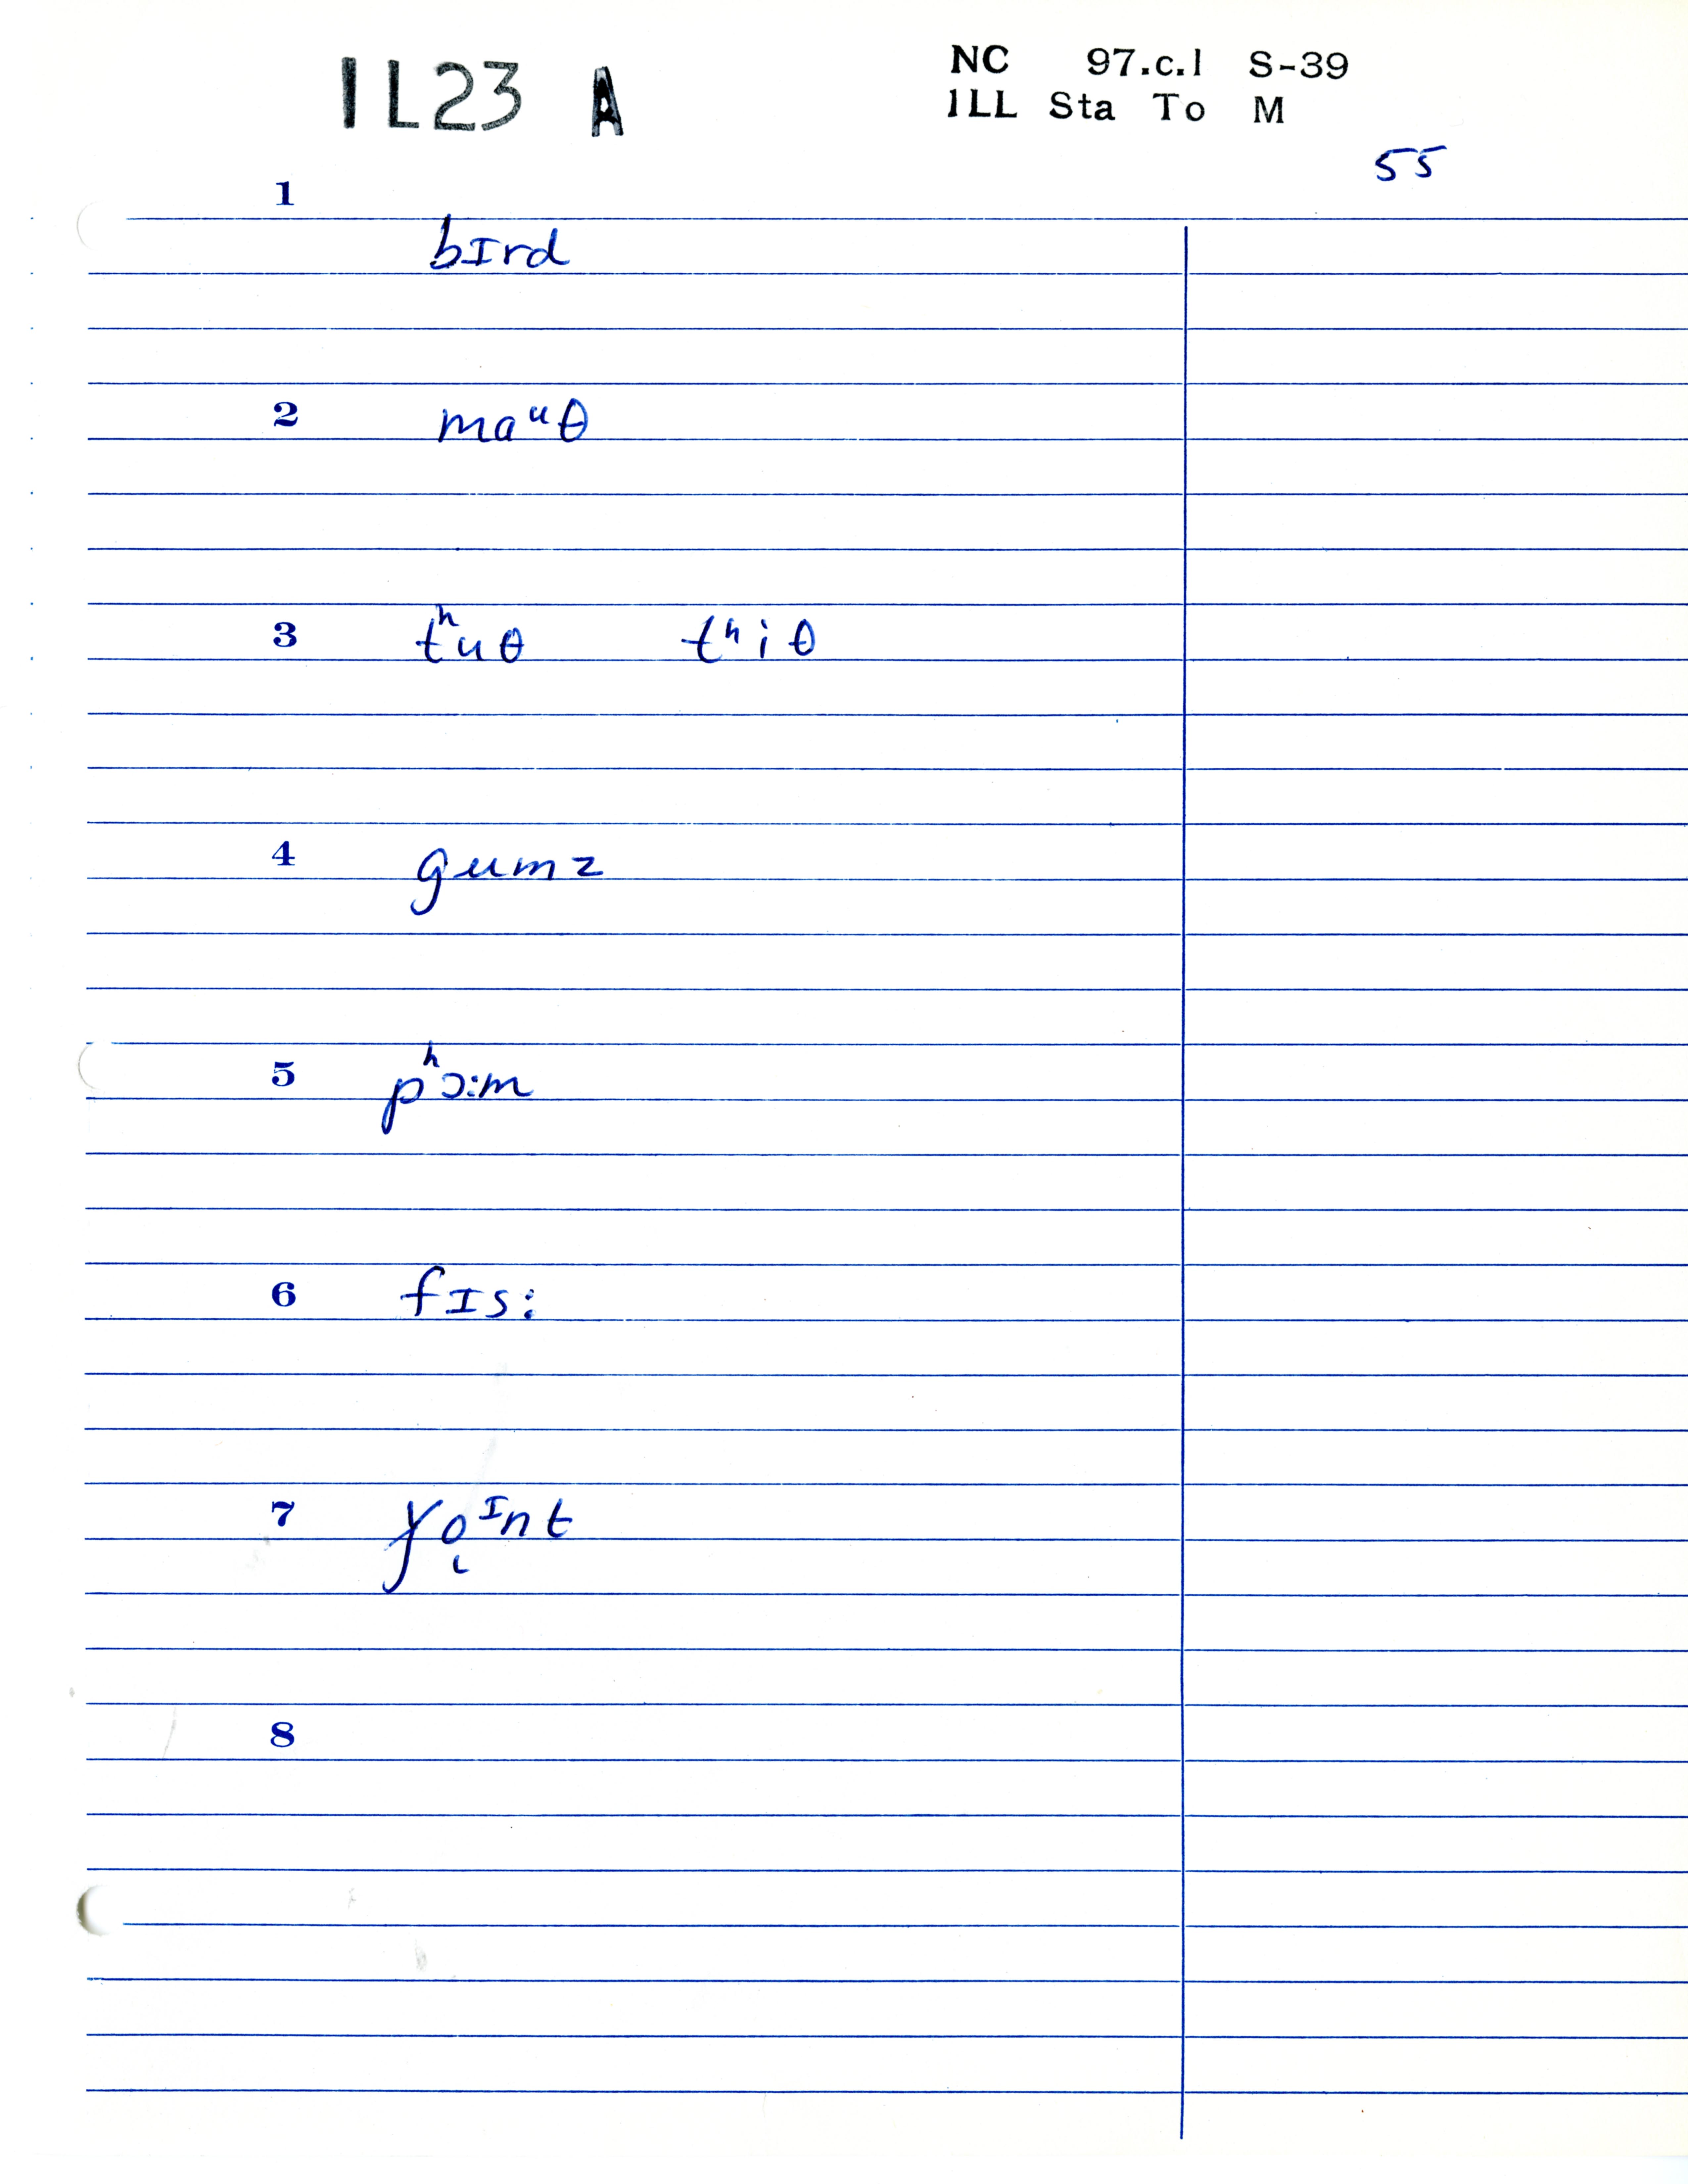 IL23 A
NC 97.c.1 S-39
ILL Sta To M
55
1
bɪrd
2 maᵘθ
3 tʰuθ tʰiθ
4 gumz
5 pʰɔ:m
6 fɪs:
7
8